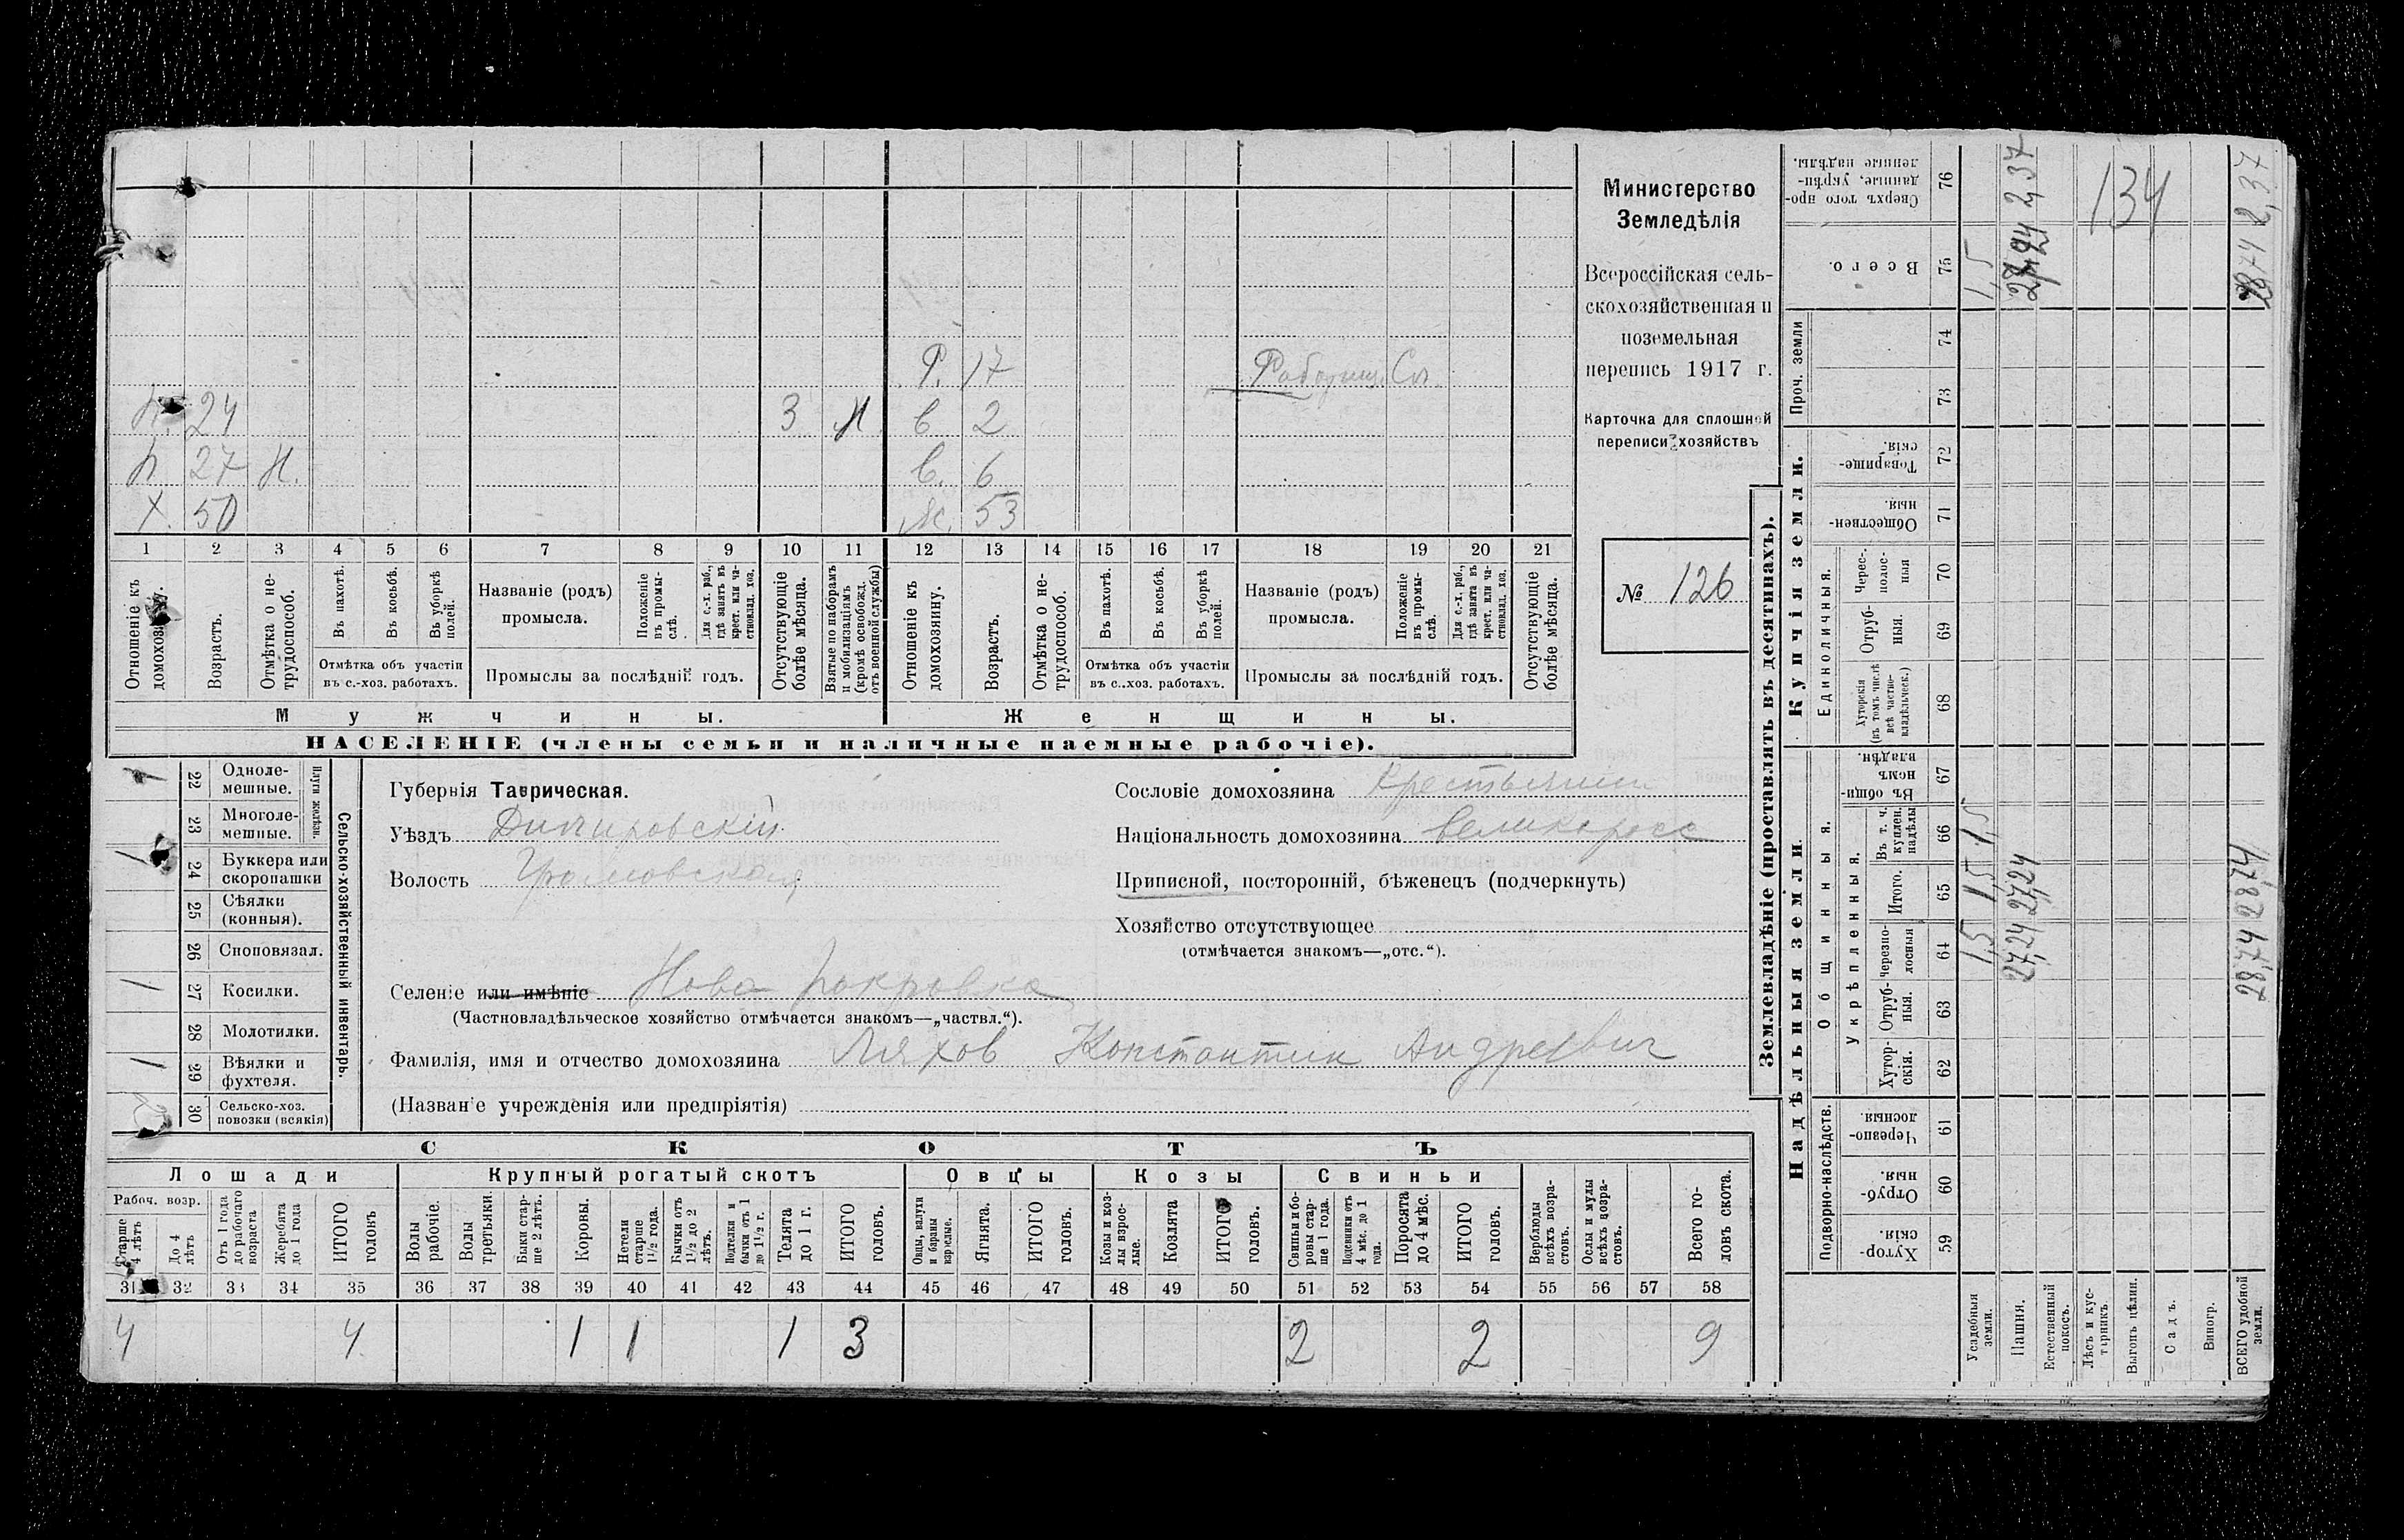 Министерство
Земледѣлія
Всероссійская сель-
скохозяйственная и
поземельная
перепись 1917 г.
Карточка для сплошной
переписи хозяйствъ
№ 126
Р. 17 Работниц. Сп.
п. 24 3 М в. 2
п 27 Н. в. 6
Х. 50 ж. 53
1 2 3 4 5 6 7 8 9 10 11 12 13 14 15 16 17 18 19 20 21
Отношеніе къ домохозяину.
Возрастъ.
Отмѣтка о не-трудоспособ.
Въ пахотѣ.
Въ косьбѣ.
Въ уборкѣ полей.
Отмѣтка объ участіи
въ с.-хоз. работахъ.
Названіе (родъ)
промысла.
Положеніе въ промы-слѣ.
Для с.-х. раб., гдѣ занятъ въ крест. или ча-стновлад. хоз.
Промыслы за послѣдній годъ.
Отсутствующіе болѣе мѣсяца.
Взятые по наборамъ и мобилизаціямъ (кромѣ освобожд. отъ военной службы)
Отношеніе къ домохозяину.
Возрастъ.
Отмѣтка о не-трудоспособ.
Въ пахотѣ.
Въ косьбѣ.
Въ уборкѣ полей.
Отмѣтка объ участіи
въ с.-хоз. работахъ.
Названіе (родъ)
промысла.
Положеніе въ промы-слѣ.
Для с.-х. раб., гдѣ занята въ крест. или ча-стновлад. хоз.
Промыслы за послѣдній годъ.
Отсутствующіе болѣе мѣсяца.
Мужчины. Женщины.
НАСЕЛЕНІЕ (члены семьи и наличные наемные рабочіе).
Сельско-хозяйственный инвентарь.
Плуги желѣзн.
1 22 Однолемешные.
23 Многолемешные.
1 24 Буккера или скоропашки
25 Сѣялки (конныя).
26 Сноповязал.
1 27 Косилки.
28 Молотилки.
1 29 Вѣялки и фухтеля.
30 Сельско-хоз. повозки (всякія)
Губернія Таврическая.
Уѣздъ Днѣпровскій
Волость Громовская
Селеніе или имѣніе Ново Покровка
(Частновладѣльческое хозяйство отмѣчается знакомъ—„частвл.“).
Фамилія, имя и отчество домохозяина Ляхов Константин Андреевич
(Названіе учрежденія или предпріятія)
Сословіе домохозяина Крестьянин
Національность домохозяина великоросс
Приписной, посторонній, бѣженецъ (подчеркнуть)
Хозяйство отсутствующее
(отмѣчается знакомъ—„отс.“).
СКОТЪ
Лошади Крупный рогатый скотъ Овцы Козы Свиньи
Рабоч. возр.
Старше 4 лѣтъ
До 4 лѣтъ
Отъ 1 года до рабочаго возраста
Жеребята до 1 года
ИТОГО головъ
Волы рабочіе.
Волы третьяки.
Быки стар-ше 2 лѣтъ.
Коровы.
Нетели старше 1½ года.
Бычки отъ 1½ до 2 лѣтъ.
Подтелки и бычки отъ 1 до 1½ г.
Телята до 1 г.
ИТОГО головъ.
Овцы, валухи и бараны взрослые.
Ягнята.
ИТОГО головъ.
Козы и коз-лы взрос-лые.
Козлята
ИТОГО головъ.
Свиньи и бо-ровы стар-ше 1 года.
Подсвинки отъ 4 мѣс. до 1 года.
Поросята до 4 мѣс.
ИТОГО головъ.
Верблюды всѣхъ возра-стовъ.
Ослы и мулы всѣхъ возра-стовъ.
Всего го-ловъ скота.
31 32 33 34 35 36 37 38 39 40 41 42 43 44 45 46 47 48 49 50 51 52 53 54 55 56 57 58
4 4 1 1 1 3 2 2 9
Землевладѣніе (проставлять въ десятинахъ).
Надѣльныя земли. Купчія земли.
Подворно-наслѣдств.
Общинныя.
Укрѣпленныя.
Единоличныя.
Проч. земли
59 Хуторскія.
60 Отрубныя.
61 Черезполосныя.
62 Хуторскія.
63 Отрубныя.
64 Черезполосныя
65 Итого.
66 Въ т. ч. куплен. надѣлы
67 Въ общинномъ владѣн.
68 Хуторскія (въ томъ числѣ всѣ частновладѣльческ.)
69 Отрубныя.
70 Чересполосныя
71 Общественныя.
72 Товарищескія.
73
74
75 Всего.
76 Сверхъ того проданные, укрѣпленные надѣлы.
Усадебныя земли. 1,5 1,5 1,5 1,5
Пашня. 27,24 27,24 2,37
Естественный покосъ.
Лѣсъ и кустарникъ. 134
Выгонъ цѣлин.
Садъ.
Виногр.
ВСЕГО удобной земли. 28,74 28,74 28,74 2,37